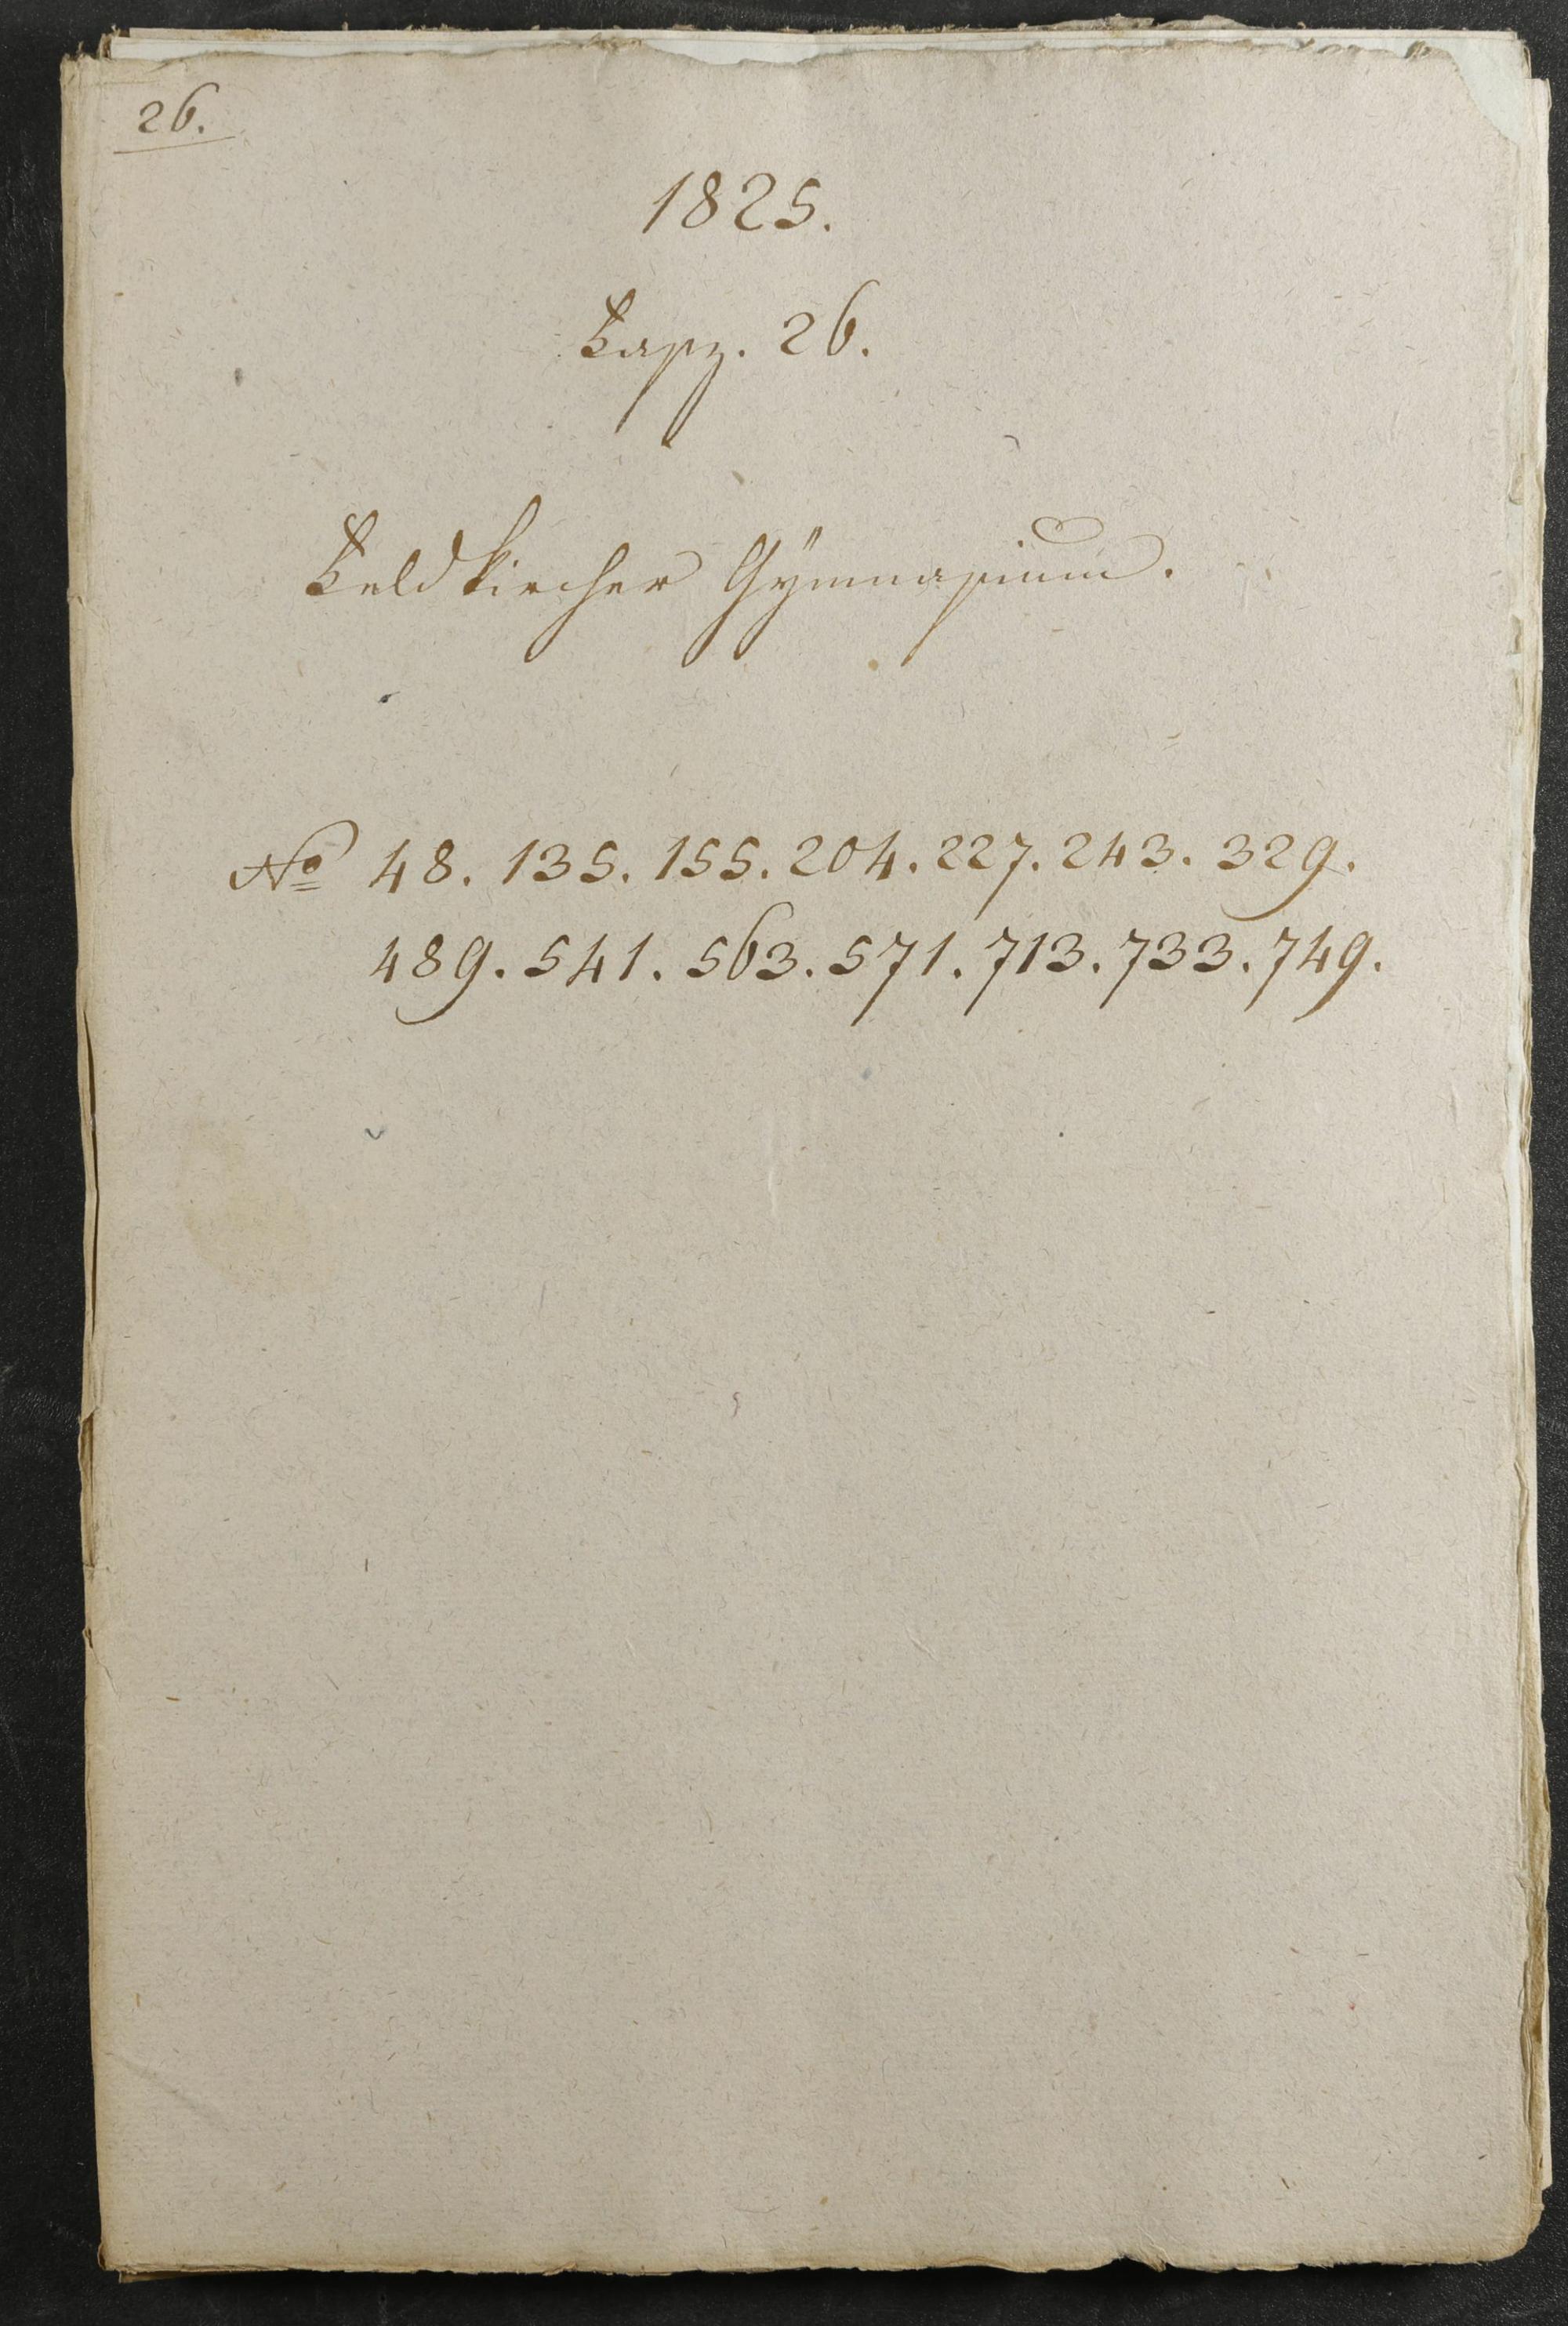 26.
1825.
Fasz. 26.
Feldkircher Gÿmnasium.
No 48. 135. 155. 204. 227. 243. 329.
489. 541. 563. 571. 713. 733. 749.